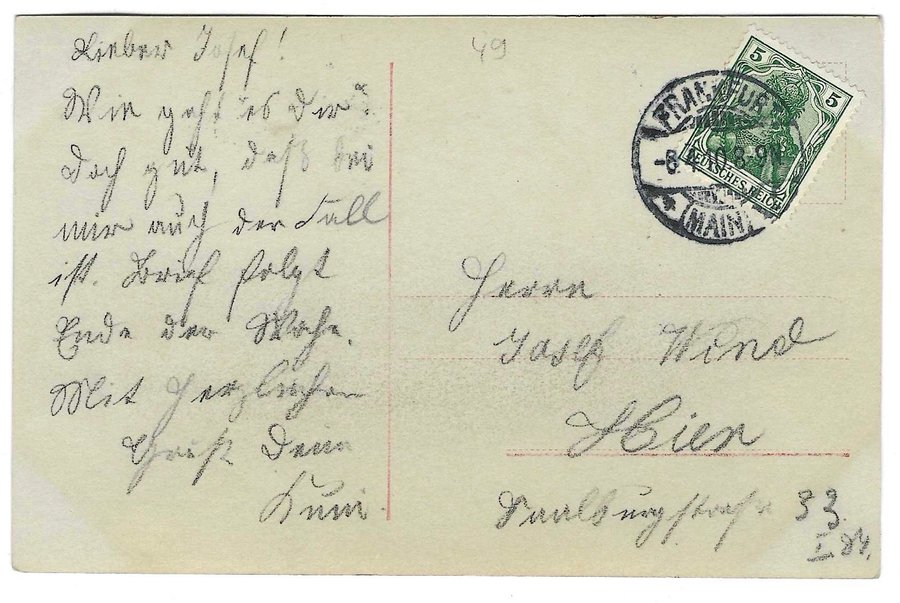 Lieber Josef!
Wie geht es Dir?
Doch gut, daß bei
mir auch der Fall
ist. Brief folgt
Ende der Woche.
Mit herzlichem
Gruß Deine
Kuni.
49
5
5
DEUTSCHES REICH
FRANKFURT
8.4.10.8-9N
MAIN
Herrn
Josef Wind
Hier
Saalburgstraße 33
I 84.